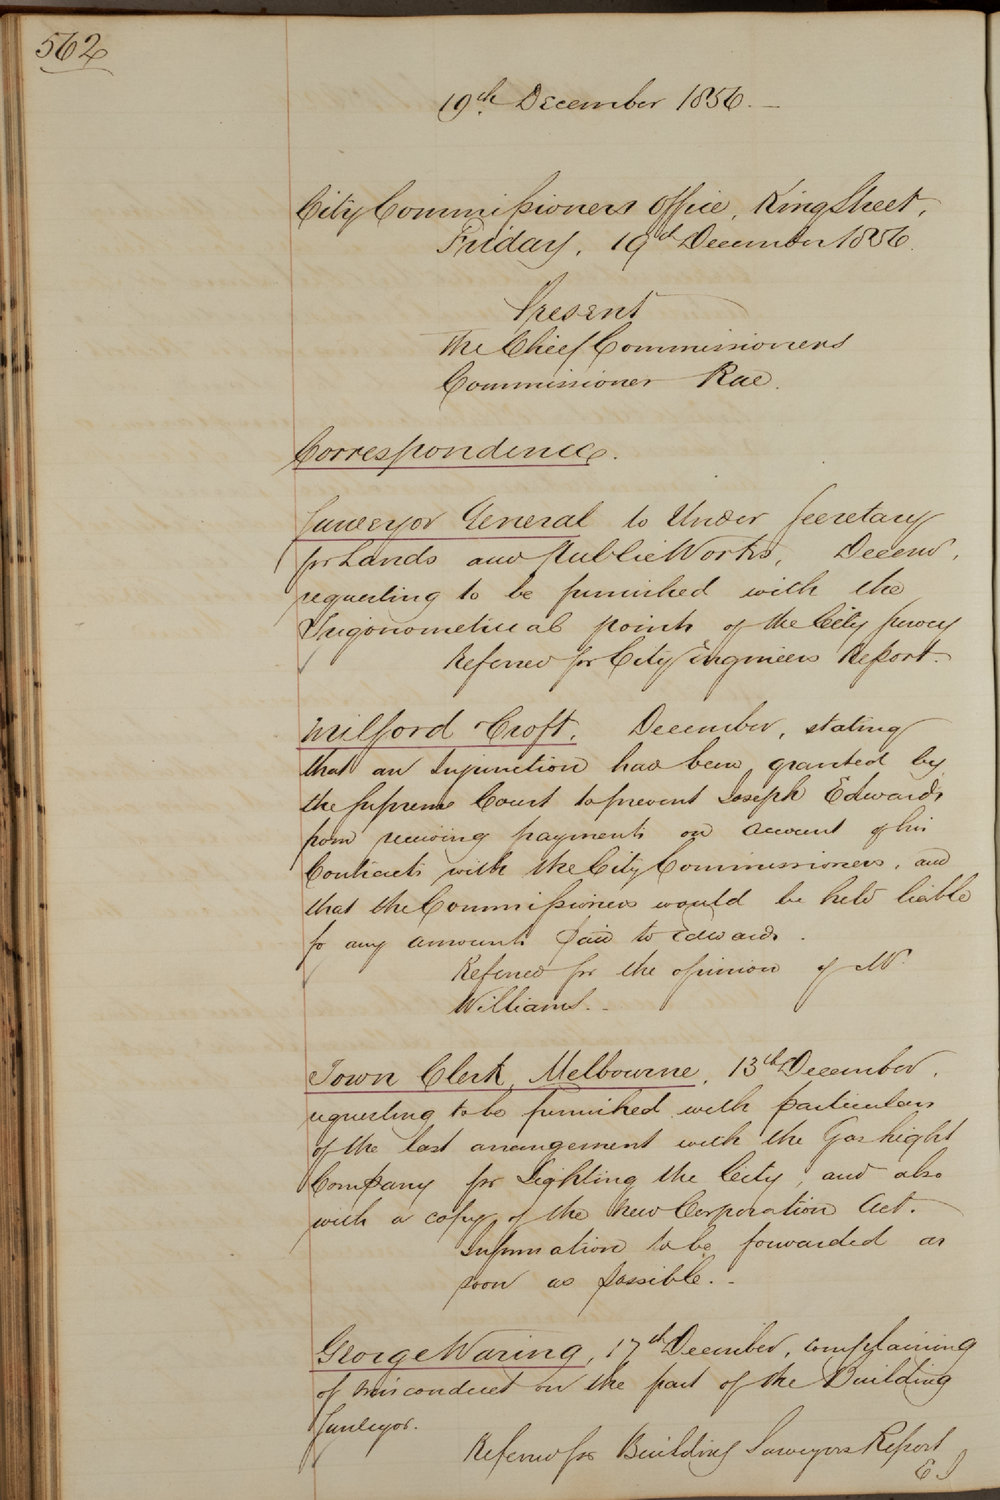 562
19th December 1856.
City Commissioners Office, King Street,
Friday, 19th December 1856.
Present
The Chief Commissioners
Commissioner Rae.
Correspondence.
Surveyor General to Under Secretary
for Lands and Public Works, Decemr,
requesting to be furnished with the
Trigonometrical points of the City Survey
Referred for City Engineers Report.
Milford Croft. December, stating
that an Injunction had been granted by
the Supreme Court to prevent Joseph Edwards
from receiving payments on account of his
Contracts with the City Commissioners, and
that the Commissioners would be held liable
for any amounts paid to Edwards.
Referred for the opinion of Mr
Williams.
Town Clerk, Melbourne, 13th December,
requesting to be furnished with particulars
of the last arrangement with the Gas Light
Company for Lighting the City, and also
with a copy of the new Corporation Act.
Information to be forwarded as
soon as possible.
George Waring, 17th December, complaining
of misconduct on the part of the Building
Surveyor.
Referred for Building Surveyors Report